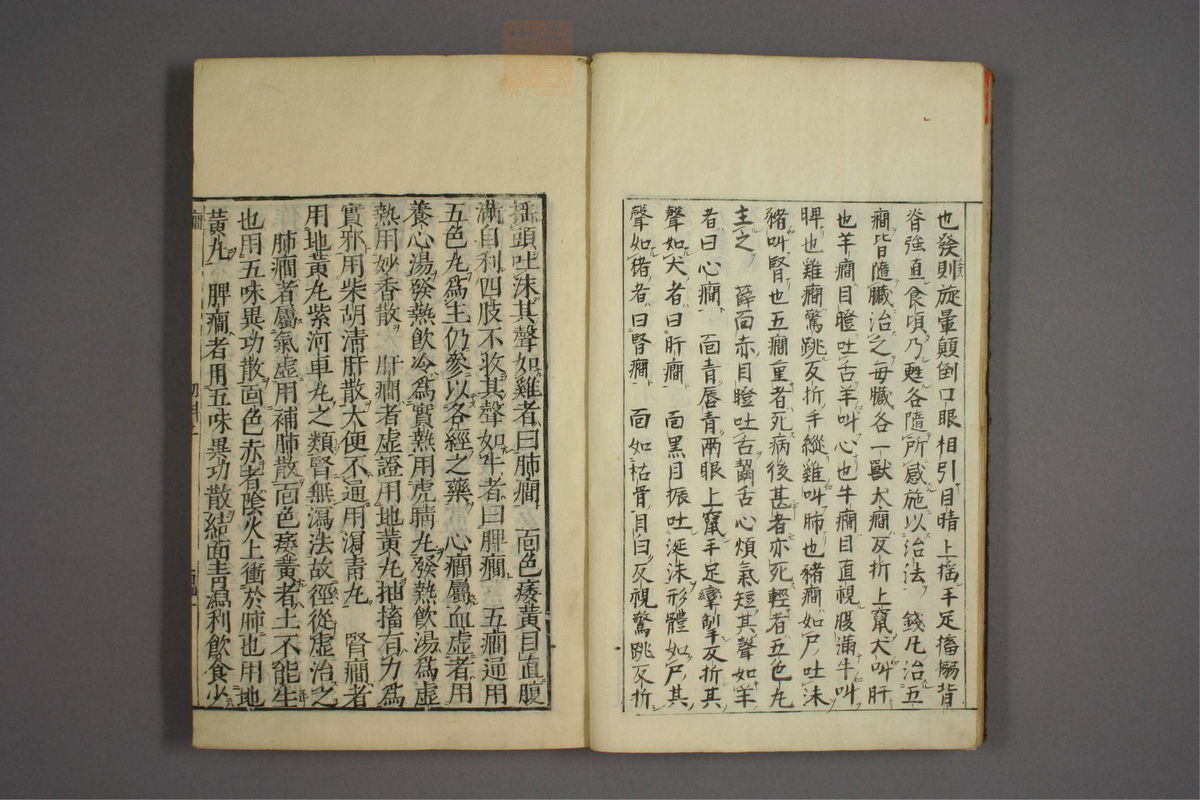 也發則旋暈顛倒口眼相引目睛上搖手足搐搦背
脊強直食頃乃甦各隨所感施以治法 錢氏治五
癇皆隨臟治之每臟各一獸犬癇反折上竄犬叫肝
也羊癇目瞪吐舌羊叫心也牛癇目直視腹滿牛叫
脾也雞癇驚跳反折手縱雞叫肺也豬癇如尸吐沫
豬叫腎也五癇重者死病後甚者亦死輕者五色丸
主之 薛面赤目瞪吐舌齧舌心煩氣短其聲如羊
者曰心癇 面青唇青兩眼上竄手足攣掣反折其
聲如犬者曰肝癇 面黑目振吐涎沫形體如尸其
聲如猪者曰腎癇 面如枯骨目白反視驚跳反折
搖頭吐沫其聲如雞者曰肺癇 面色痿黃目直腹
滿自利四肢不收其聲如牛者曰脾癇 五癇通用
五色丸爲主仍參以各經之藥 心癇屬血虛者用
養心湯發熱飲冷爲實熱用虎睛丸發熱飲湯爲虛
熱用妙香散 肝癇者虛證用地黃丸抽搐有力爲
實邪用柴胡清肝散大便不通用瀉青丸 腎癇者
用地黃丸紫河車丸之類腎無瀉法故徑從虛治之
肺癇者屬氣虛用補肺散面色痿黃者土不能生
也用五味異功散面色赤者陰火上衝於肺也用地
黃丸 脾癇者用五味異功散結面青瀉利飲食少
癇